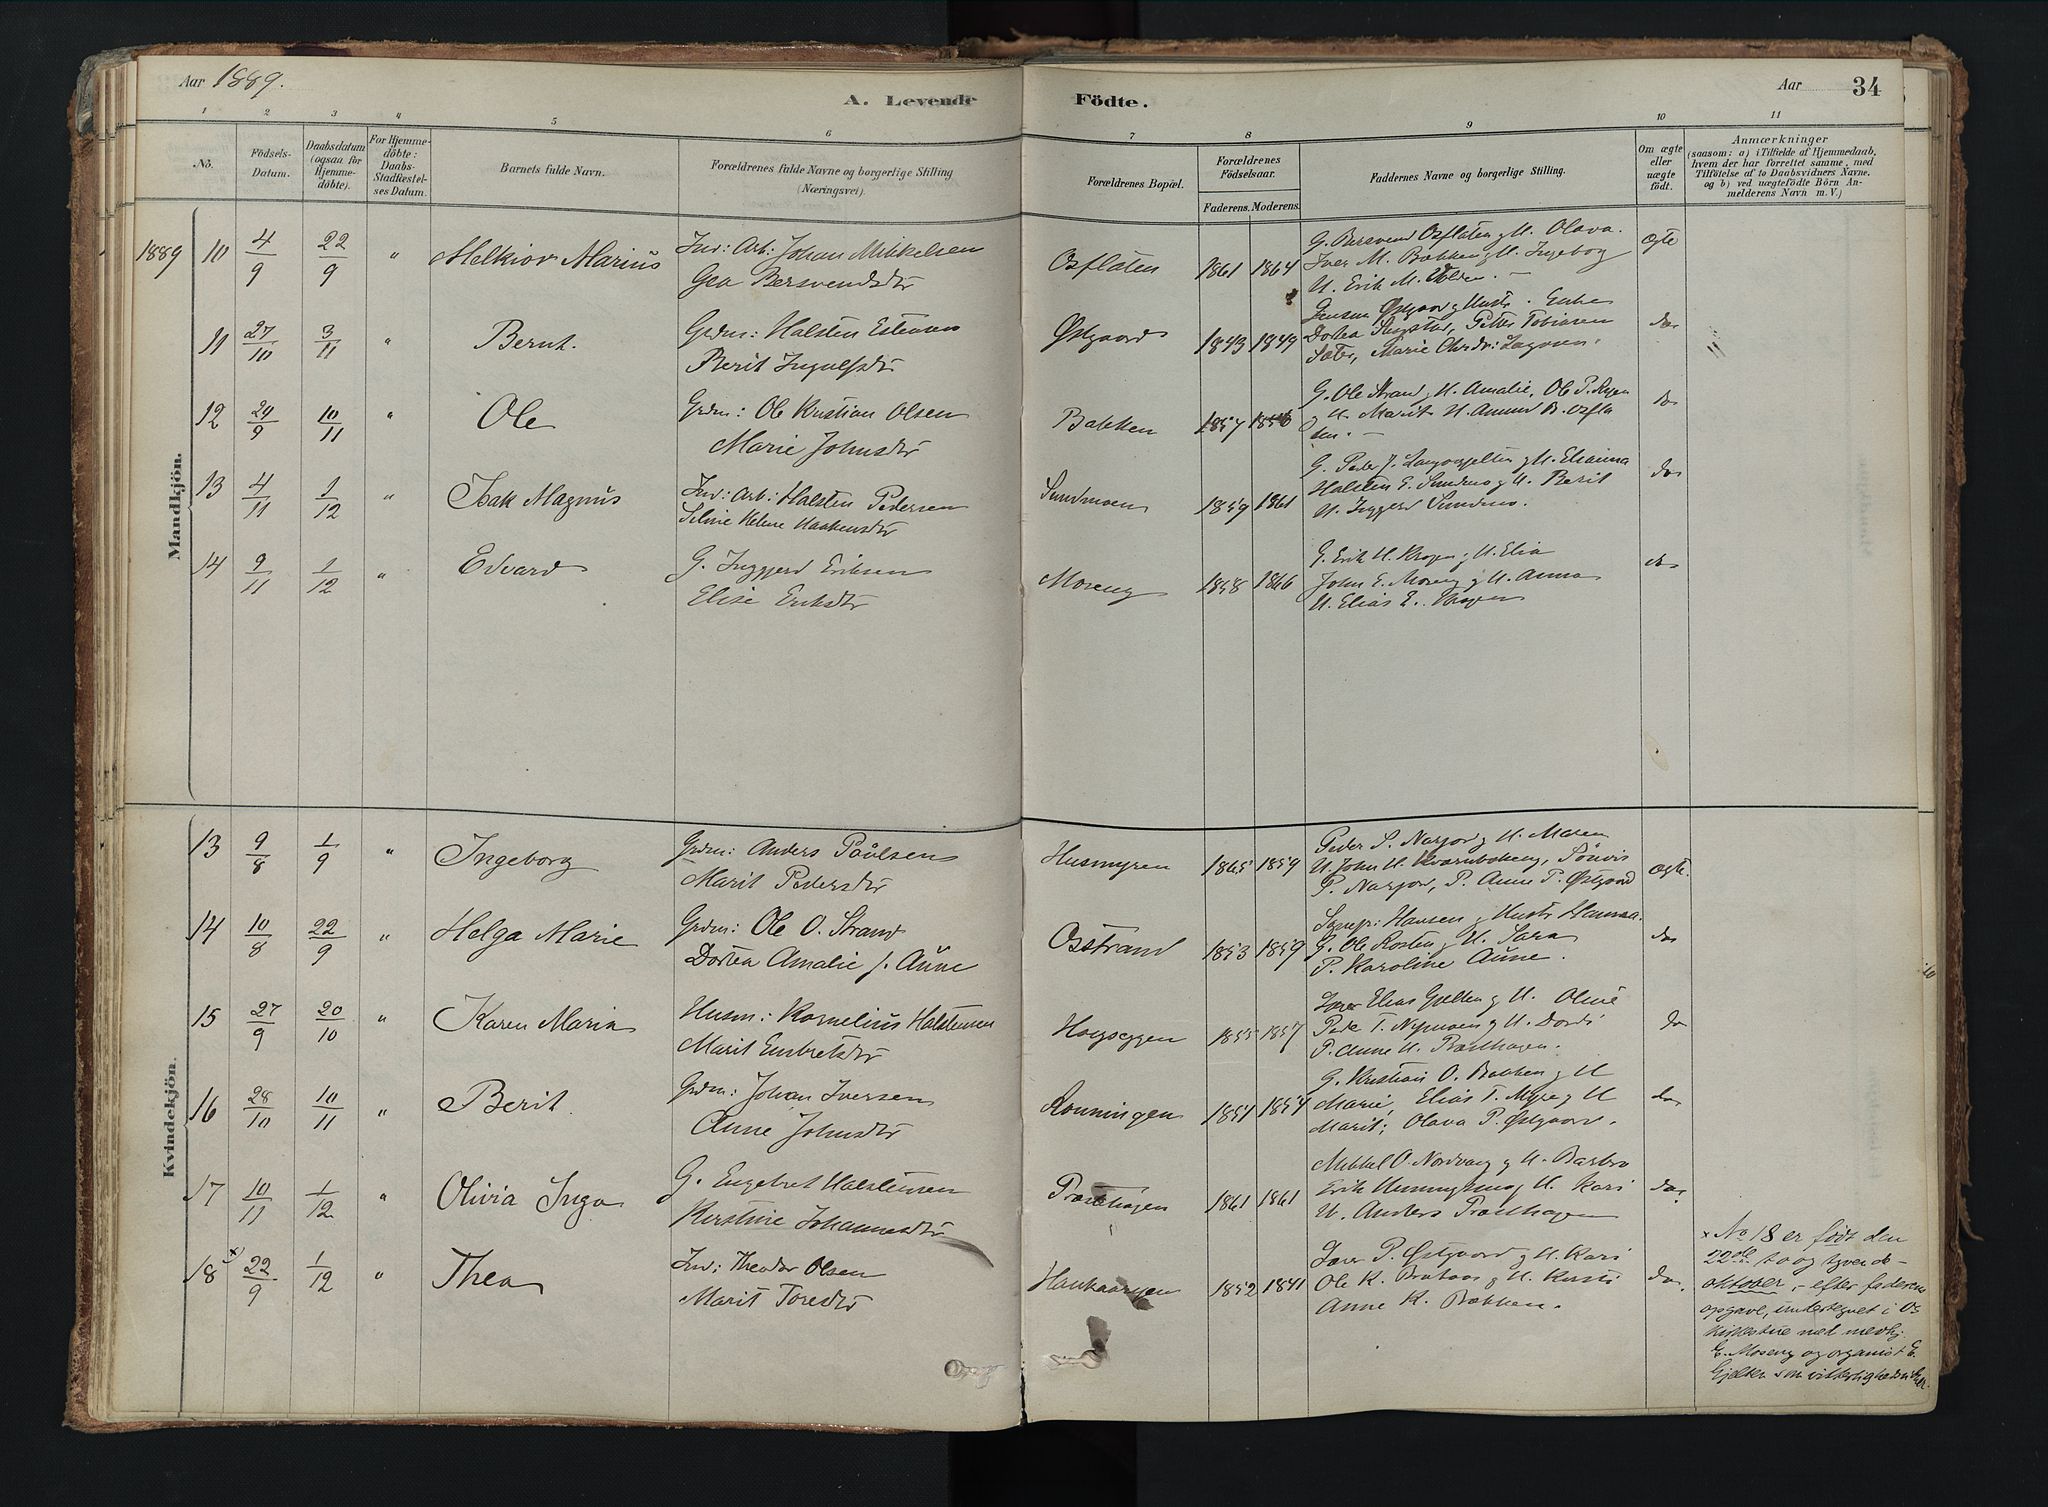 Aar 1889.
A. Levende
Födte.
Aar
34
1 2 3 4 5 6 7 8 9 10 11
No.
Födsels-
Datum.
Daabsdatum
(ogsaa for
Hjemme-
döbte).
For Hjemme-
döbte:
Daabs-
Stadfæstel-
ses Datum.
Barnets fulde Navn.
Forældrenes fulde Navne og borgerlige Stilling
(Næringsvei).
Forældrenes Bopæl.
Forældrenes
Födselsaar.
Faderens. Moderens.
Faddernes Navne og borgerlige Stilling.
Om ægte
eller
uægte
födt.
Anmærkninger
(saasom: a) i Tilfælde af Hjemmedaab,
hvem der har forrettet samme, med
Tilföielse af to Daabsvidners Navne.
og b) ved uægtefödte Börn An-
melderens Navn m. V.)
Mandkjön.
1889 10 4/9 22/9 " Melkior Marius
Inv: Arb: Johan Mikkelsen
Gea Bersvendsdtr
Osfløten 1861 1864
G. Bersvend Osfløten g H. Olava.
Iver M. Bakken g H. Ingebog
U. Erik M. Volden. -
Ægte
11 27/10 3/11 " Bernt.
Grdm: Halsten Estensen
Berit Ingulfsdtr
Østgaard 1843 1849
Jensen Østgaard g Hustr. Enke
Dortea Sagstad, Petter Tobiasen
Sæter, Marie
do
12 29/9 10/11 " Ole
Grdm: Ole Kristian Olsen
Marie Johnsdtr
Bakken 1857 1856
G. Ole Strand g H. Amalie, Ole P. Rugen
g H. Marit U. Amund B. Osflø
ten. -
do
13 4/11 1/12 " Isak Magnus
Inv: Arb: Halsten Pedersen
Seline Helene Haakensdtr
Sundmoen 1859 1861
G. Peder J. Langøgjelten g H. Elianna
Halsten E. Sundmo g H. Berit
U. Inggerd Sundmo.
do
14 9/11 1/12 " Edvard
G. Inggjerd Eriksen
Elise Eriksdtr
Moseng 1858 1866
G. Erik H. Krogen g H. Elia
John E. Moseng g H. Anna
U. Elias E. Krogen
do
Kvindekjön.
13 9/8 1/9 " Ingeborg
Grdm: Anders Paulsen
Marit Pedersdtr
Husmyren 1865 1859
Peder S. Narjord g H. Maren
U. John H. Kvernbekeng, Sönvis
P. Narjord, P. Anne P. Østgaard
Ægte.
14 10/8 22/9 " Helga Marie
Grdm: Ole O. Strand
Dortea Amalie J. Aune
Osstrand 1853 1859
Hansen g Hustr Hanna.
G. Ole Rosten g H. Sara
P. Karoline Aune.
do
15 27/9 20/10 " Karen Maria
Husm: Kornelius Halstensen
Marit Embretsdtr
Haugseggen 1855 1857
Elias Gjelten g H. Oline
Peder T. Nymoen g H. Dordi
P. Anne H. Præsthagen.
do
16 28/10 10/11 " Berit.
Grdm: Johan Iversen
Anne Johnsdtr
Rønningen 1854 1854
G. Kristian O. Bakken g H
Marie, Elias T. Myre g H
Marit; Olava P. Østgaard.
do
17 10/11 1/12 " Olivia Inga
G. Engebret Halstensen
Kirstine Johannesdtr
Præsthagen 1861 1861
Mikkel O. Nordvang g H. Barbro
Erik Hummelmo g H. Kari
U. Anders Præsthagen
do.
18 x) 22/9 1/12 " Thea
Inv: Theodor Olsen
Marit Toresdtr
1852 1841
Iver P. Østgaard g H. Kari
Ole K. Brataas g H. Kirsti
Anne K. Bakken.
do.
x No 18 er født den
22de to og tyvende
oktober, - efter faderens
opgave, undertegnet i Os
kirkestue med medhj.
E. Moseng og organist E.
Gjelten som vitterlighedsvidner.